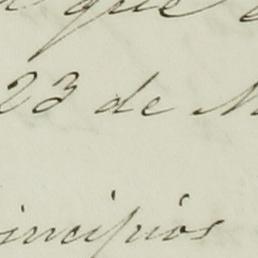 que
23 de M
incipios